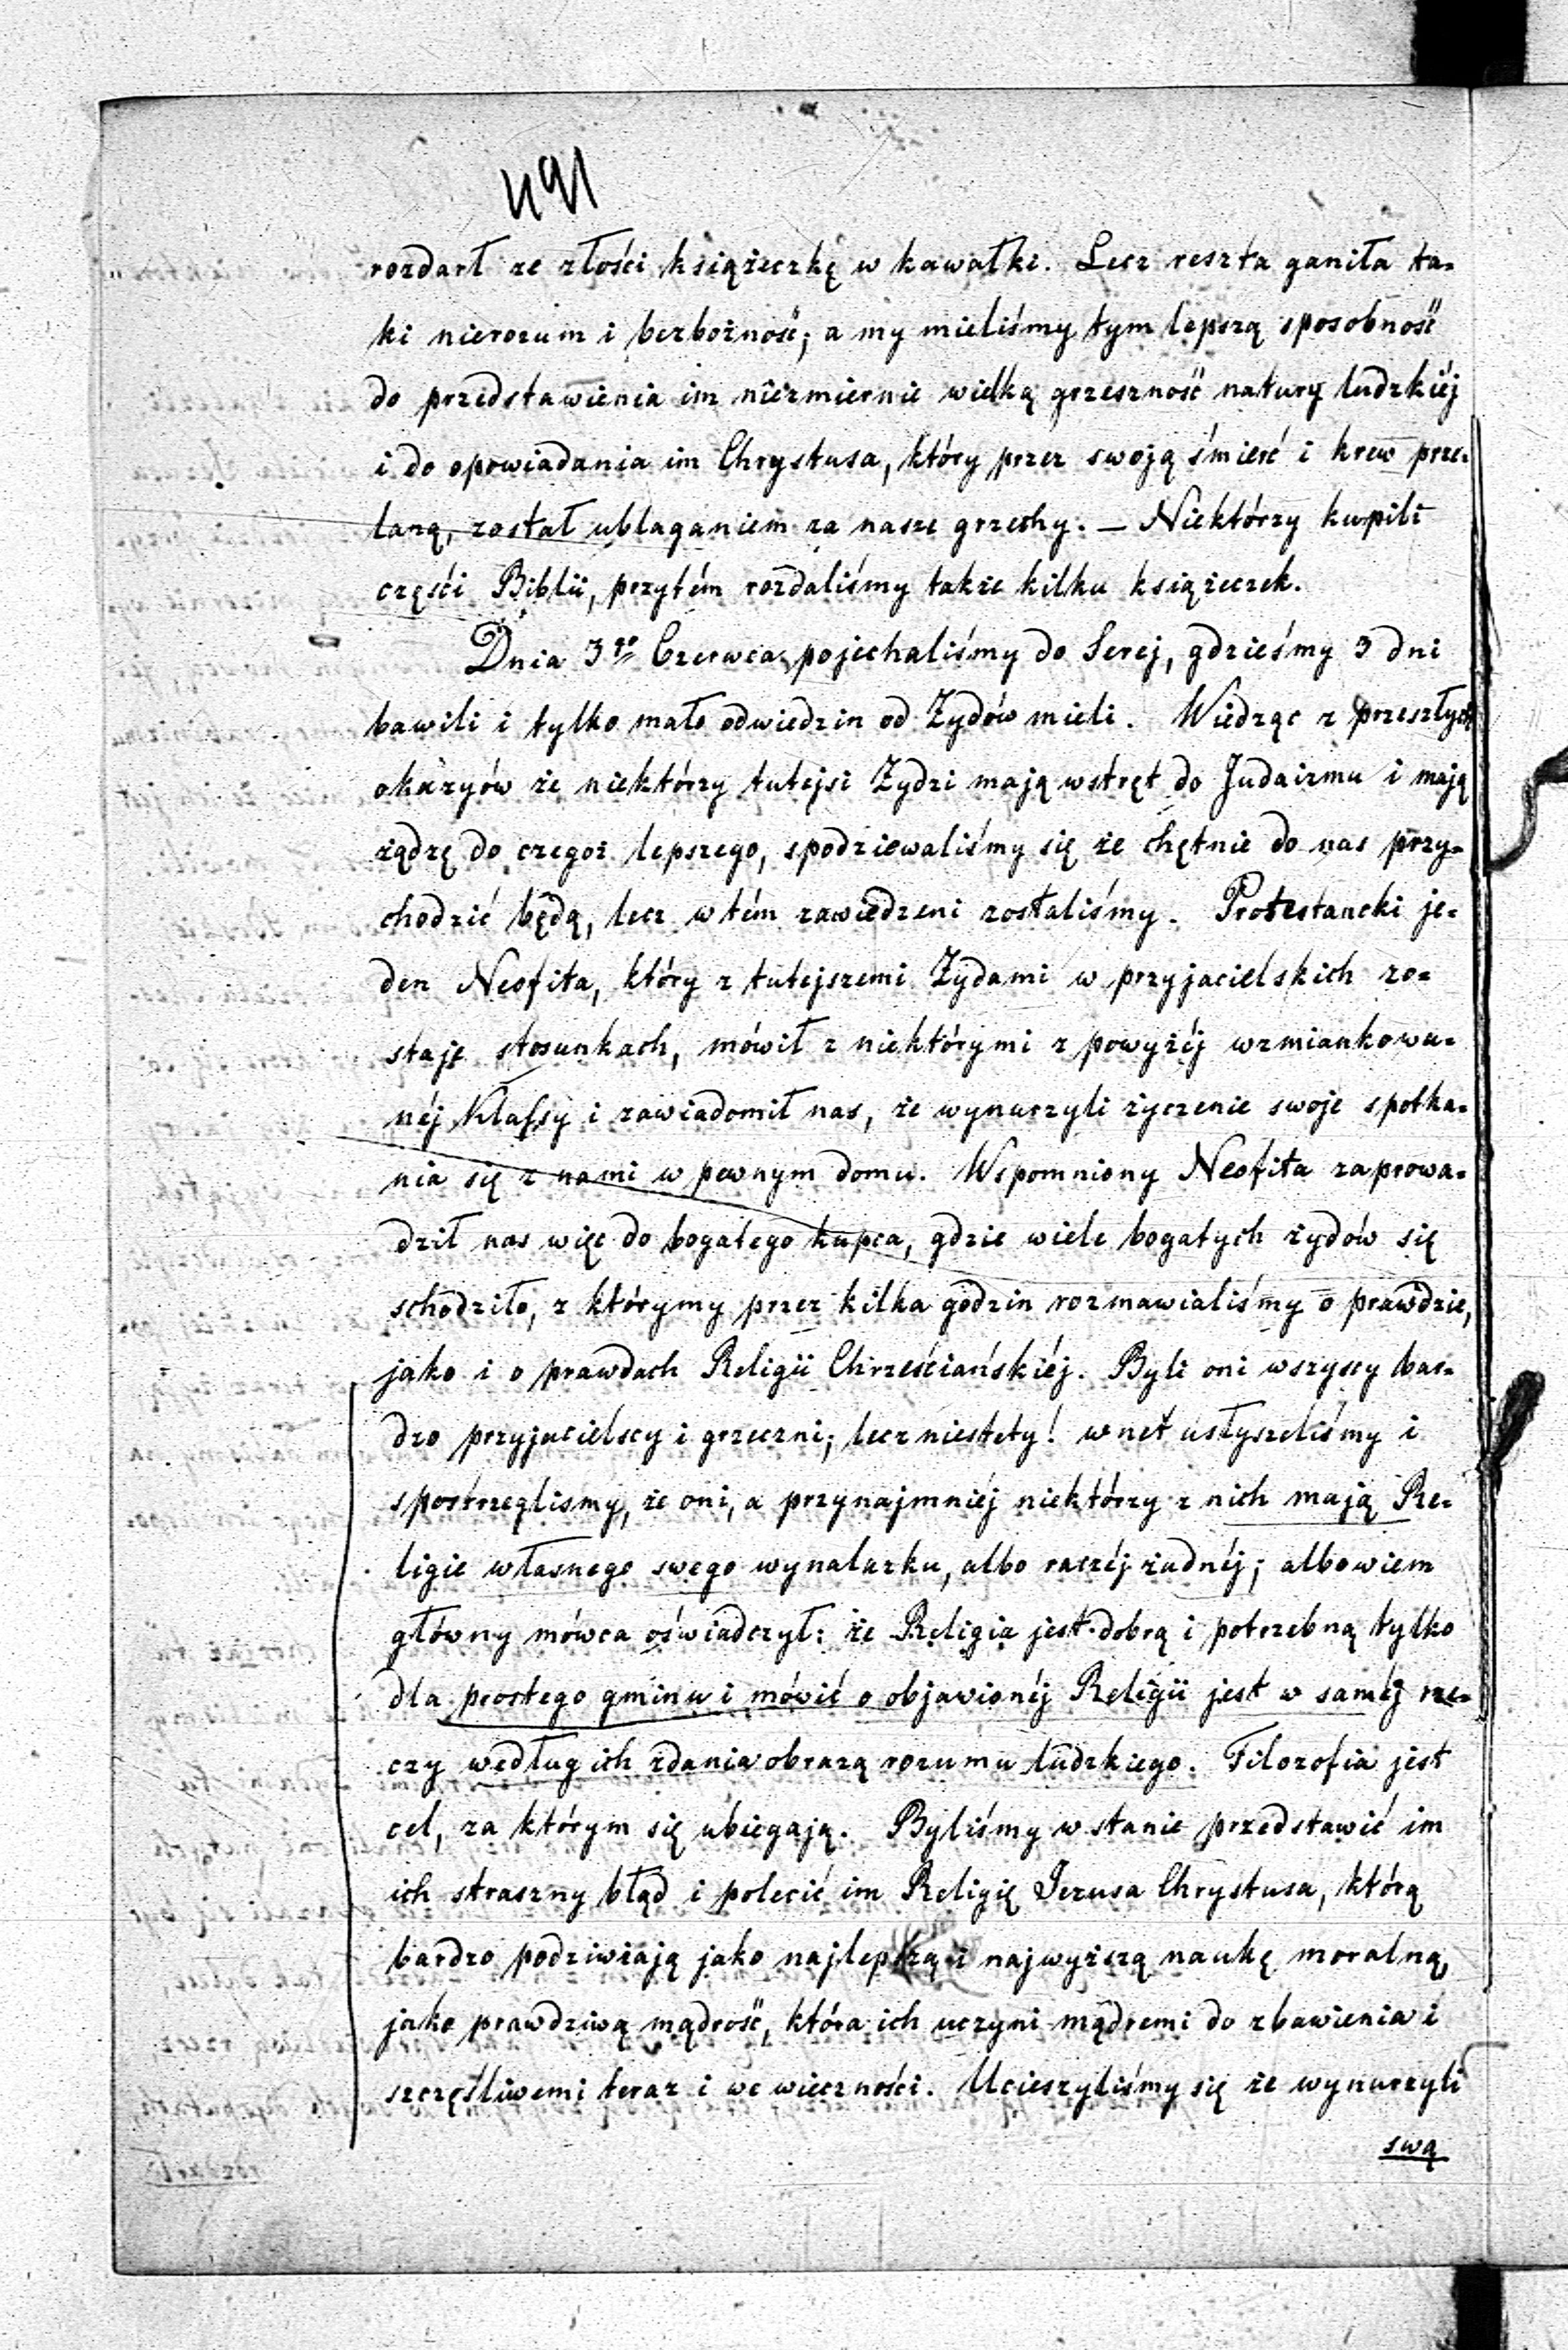 491
rozdarł ze złości książeczkę w kawałki. Lecz reszta ganiła ta-
ki nierozum i bezbożność; a my mieliśmy tym lepszą sposobność
do przedstawienia im niezmiernie wielką grzeszność natury ludzkiéj
i do opowiadania im Chrystusa, który przez swoją śmierć i krew prze-
laną, został ubłaganiem za nasze grzechy. — Niektórzy kupili
części Biblii, przytém rozdaliśmy także kilku książeczek.
Dnia 3go Czerwca pojechaliśmy do Serej, gdzieśmy 3 dni
bawili i tylko mało odwiedzin od Żydów mieli. Wiedząc z przeszłych
okazyów że niektórzy tutejsi Żydzi mają wstręt do Judaizmu i mają
żądzę do czegoś lepszego, spodziewaliśmy się że chętnie do nas przy-
chodzić będą, lecz w tém zawiedzeni zostaliśmy. Protestancki je-
den Neofita, który z tutejszemi Żydami w przyjacielskich zo-
staje stosunkach, mówił z niektórymi z powyżéj wzmiankowa-
néj Klassy i zawiadomił nas, że wynurzyli życzenie swoje spotka-
nia się z nami w pewnym domu. Wspomniony Neofita zaprowa-
dził nas więc do bogatego kupca, gdzie wiele bogatych żydów się
schodziło, z którymy przez kilka godzin rozmawialiśmy o prawdzie,
jako i o prawdach Religii Chrześciańskiéj. Byli oni wszyscy bar-
dzo przyjacielscy i grzeczni; lecz niestety! wnet usłyszeliśmy i
spostrzeglismy, że oni, a przynajmniéj niektórzy z nich mają Re-
ligie własnego swego wynalazku, albo raczéj żadnéj; albowiem
główny mówca oświadczył: że Religia jest dobrą i potrzebną tylko
dla prostego gminu i mówić o objawionéj Religii jest w saméj rze-
czy według ich zdania obrazą rozumu ludzkiego. Filozofia jest
cel, za którym się ubiegają. Byliśmy w stanie przedstawić im
ich straszny błąd i polecić im Religię Jezusa Chrystusa, którą
bardzo podziwiają jako najlepszą i najwyższą naukę moralną,
jako prawdziwą mądrość, która ich uczyni mądremi do zbawienia i
szczęśliwemi teraz i we wieczności. Ucieszyliśmy się że wynurzyli
swą